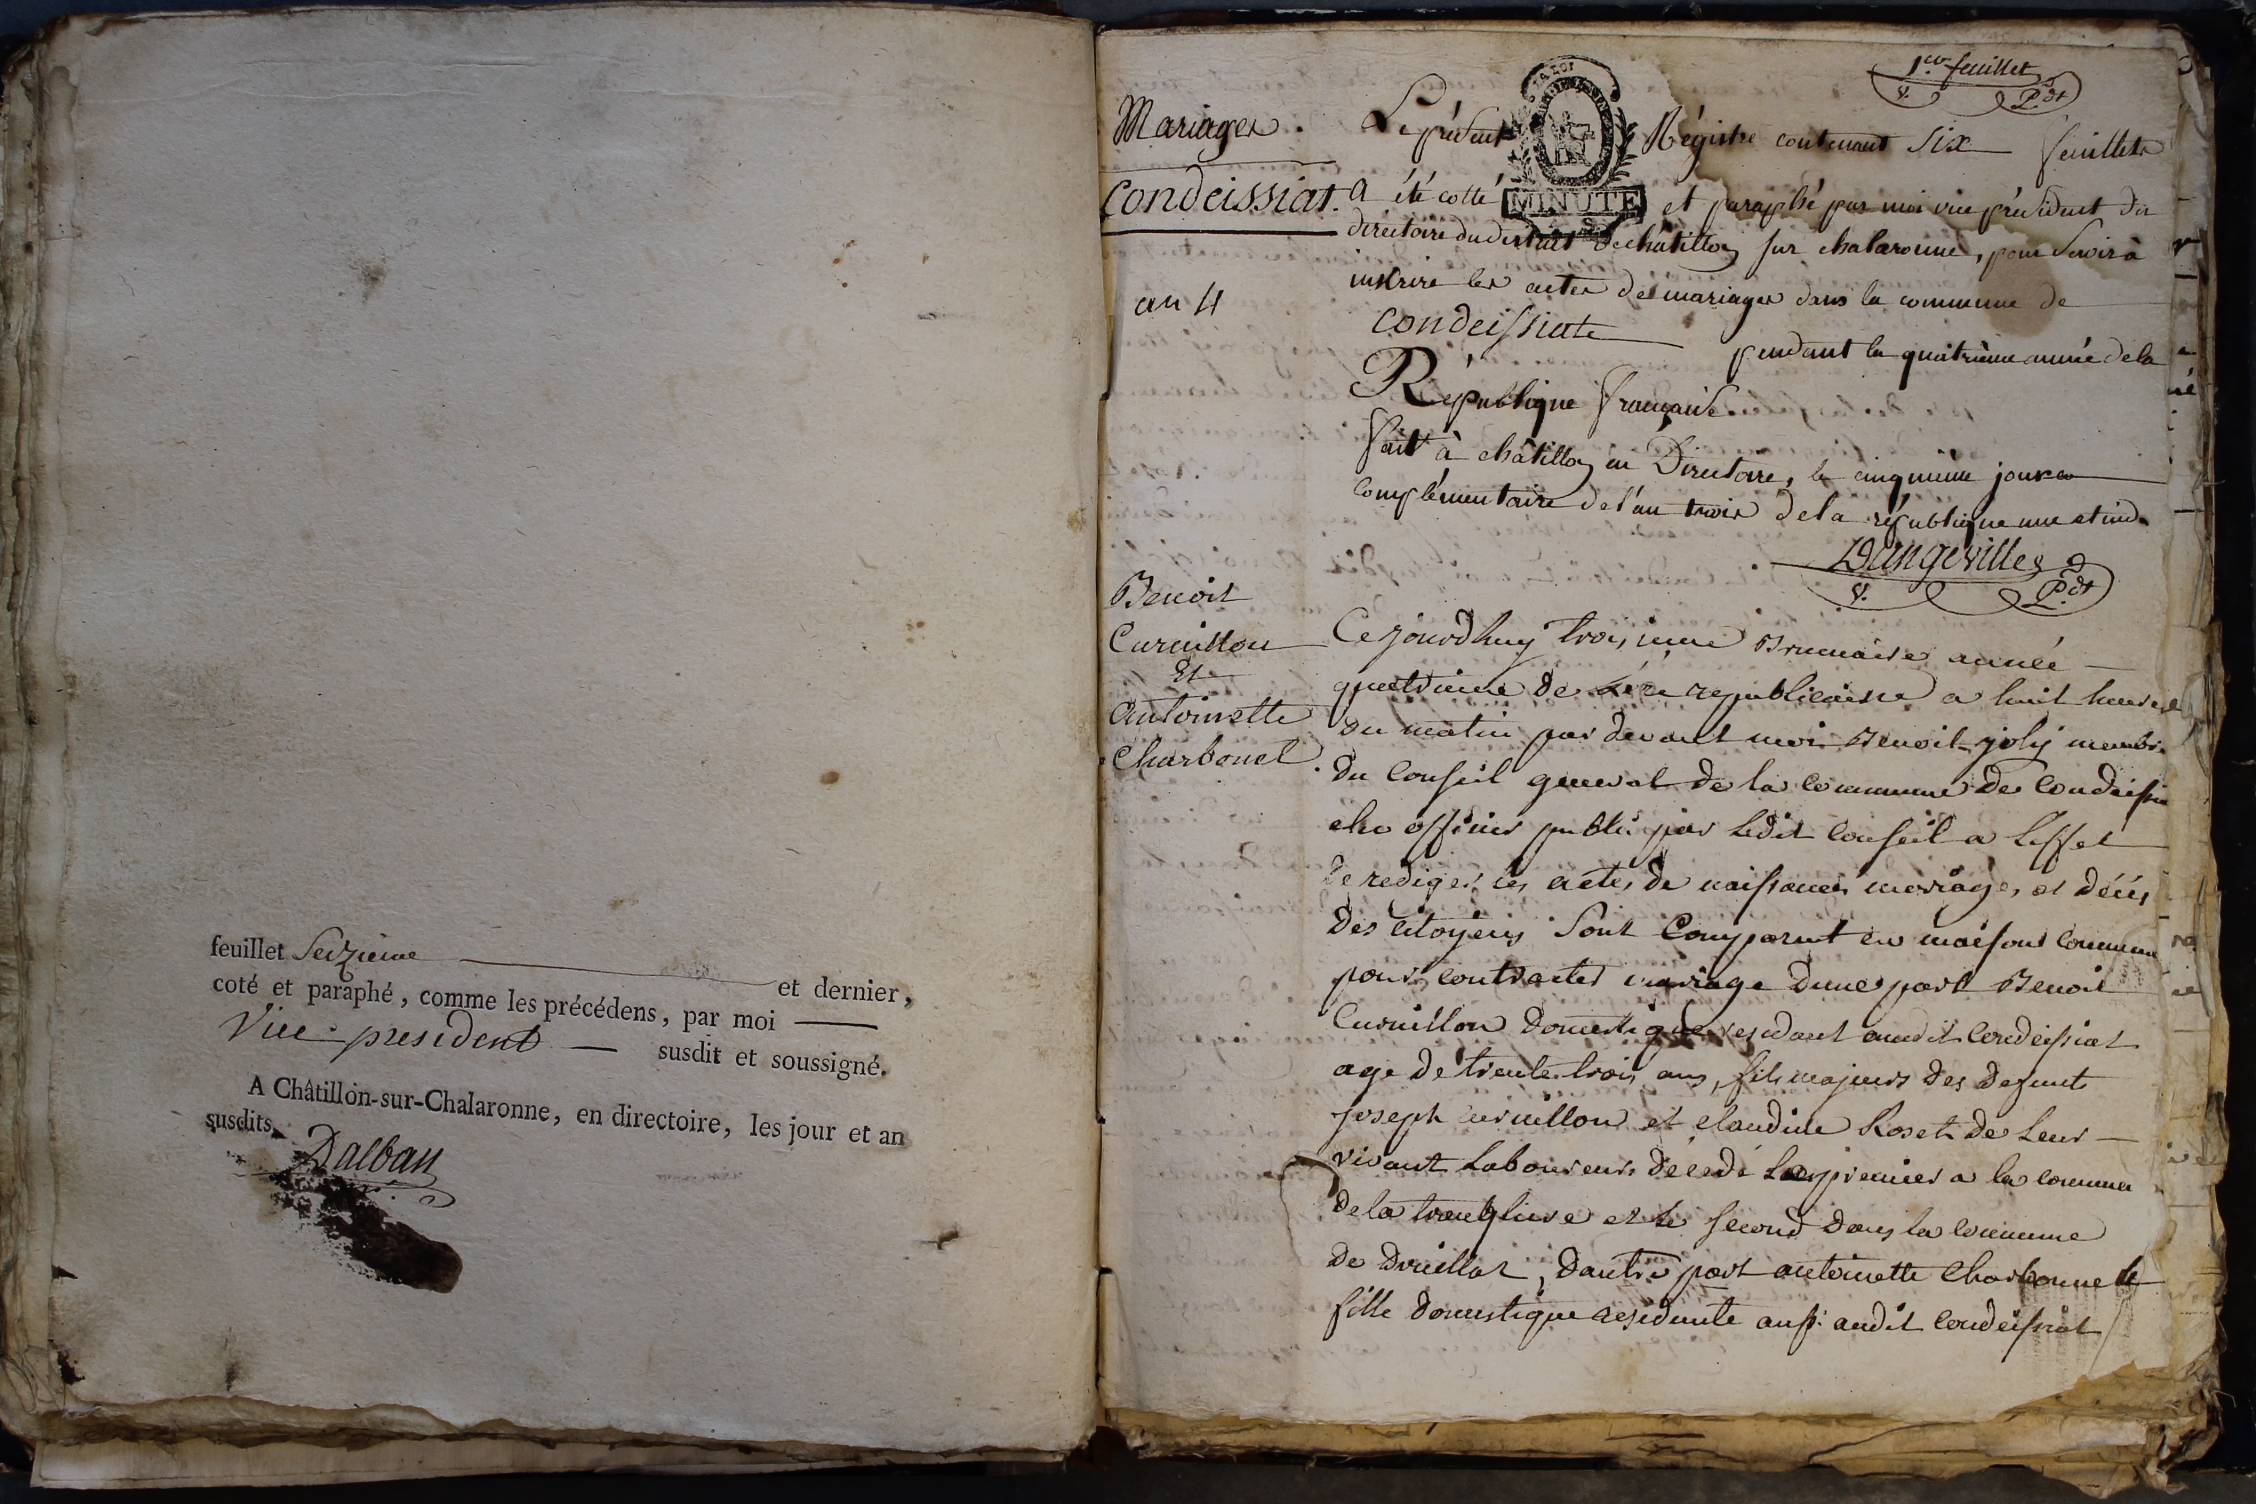 feuillet Seizieme et dernier,
coté et paraphé, comme les précédens, par moi
Vice president susdit et soussigné.
A Châtillon-sur-Chalaronne, en directoire, les jour et an
susdits.
Dalban
1er feuillet
V. P.dt
Mariages.
Condeissiat.
an 4
LA LOI
MINUTE
Le présent Régistre contenant six feuillets
a été cotté et paraphé par moi vice président du
directoire du district de châtillon sur chalaronne, pour servir à
inscrire les actes de mariages dans la commune de
Condeissiate pendant la quatrième année de la
République française.
fait à châtillon en Directoire, le cinquième jour
complémentaire de l'an trois de la république une et ind.
Dangeville
V. P.dt
Benoit
Curnillon
Et
Antoinette
Charbonel
Cejourdhuy troisieme Brumaire année
quatrieme de lere republicaine a huit heures
du matin par devant moi Benoit joly membre
du Conseil general de la commune de Condeissia
elu officier public par ledit Conseil a leffet
de rediger les actes de naissances mariages et décès
des citoyens sont Comparut en maison commune
pour contracter mariage dune part Benoit
Curnillon domestique residant audit Condeissiat
age de trente trois ans, fils majeur des defunt
joseph curnillon et claudine Roset de leur
vivant laboureurs décédé le premier a la commune
de la tranqliere et le second dans la commune
de druillat, dautre part antoinette Charbonnet
fille domestique residente aussi audit Condeissiat